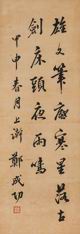 雄文筆底寒星落古
劍床頭夜雨鳴
甲申春月上澣 鄭成功